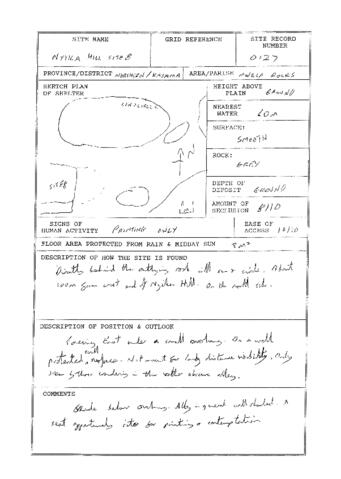 SITE NAME
GRID REFERENCE
SITE RECORD NUMBER
HILL SITE B
0127
PROVINCE/DISTRICT NORTHERN/KASAMA
AREA/PARISH ROCKS
SKETCH PLAN OF SHELTER
HEIGHT ABOVE PLAIN GROUND
NEAREST WATER
SURFACE:
SMOOTH
ROCK:
GREY
DEPTH OF DEPOSIT GROUND
AMOUNT OF SECLUSION 8/10
SITE B
N
SIGNS OF HUMAN ACTIVITY PAINTING ONLY
EASE OF ACCESS 10/10
FLOOR AREA PROTECTED FROM RAIN & MIDDAY SUN 8 m²
DESCRIPTION OF HOW THE SITE IS FOUND
Directly behind the outlying rock with circle. About
100m from west end of Hill. On the north side.
DESCRIPTION OF POSITION & OUTLOOK
Facing East under a small overhang. On a well
protected surface. Not meant for long distance visibility. Only
seen by those wandering in the rather obscure alley.
COMMENTS
Shade below overhang. Alley in general well shaded. A
neat opportunity site for painting & contemplation